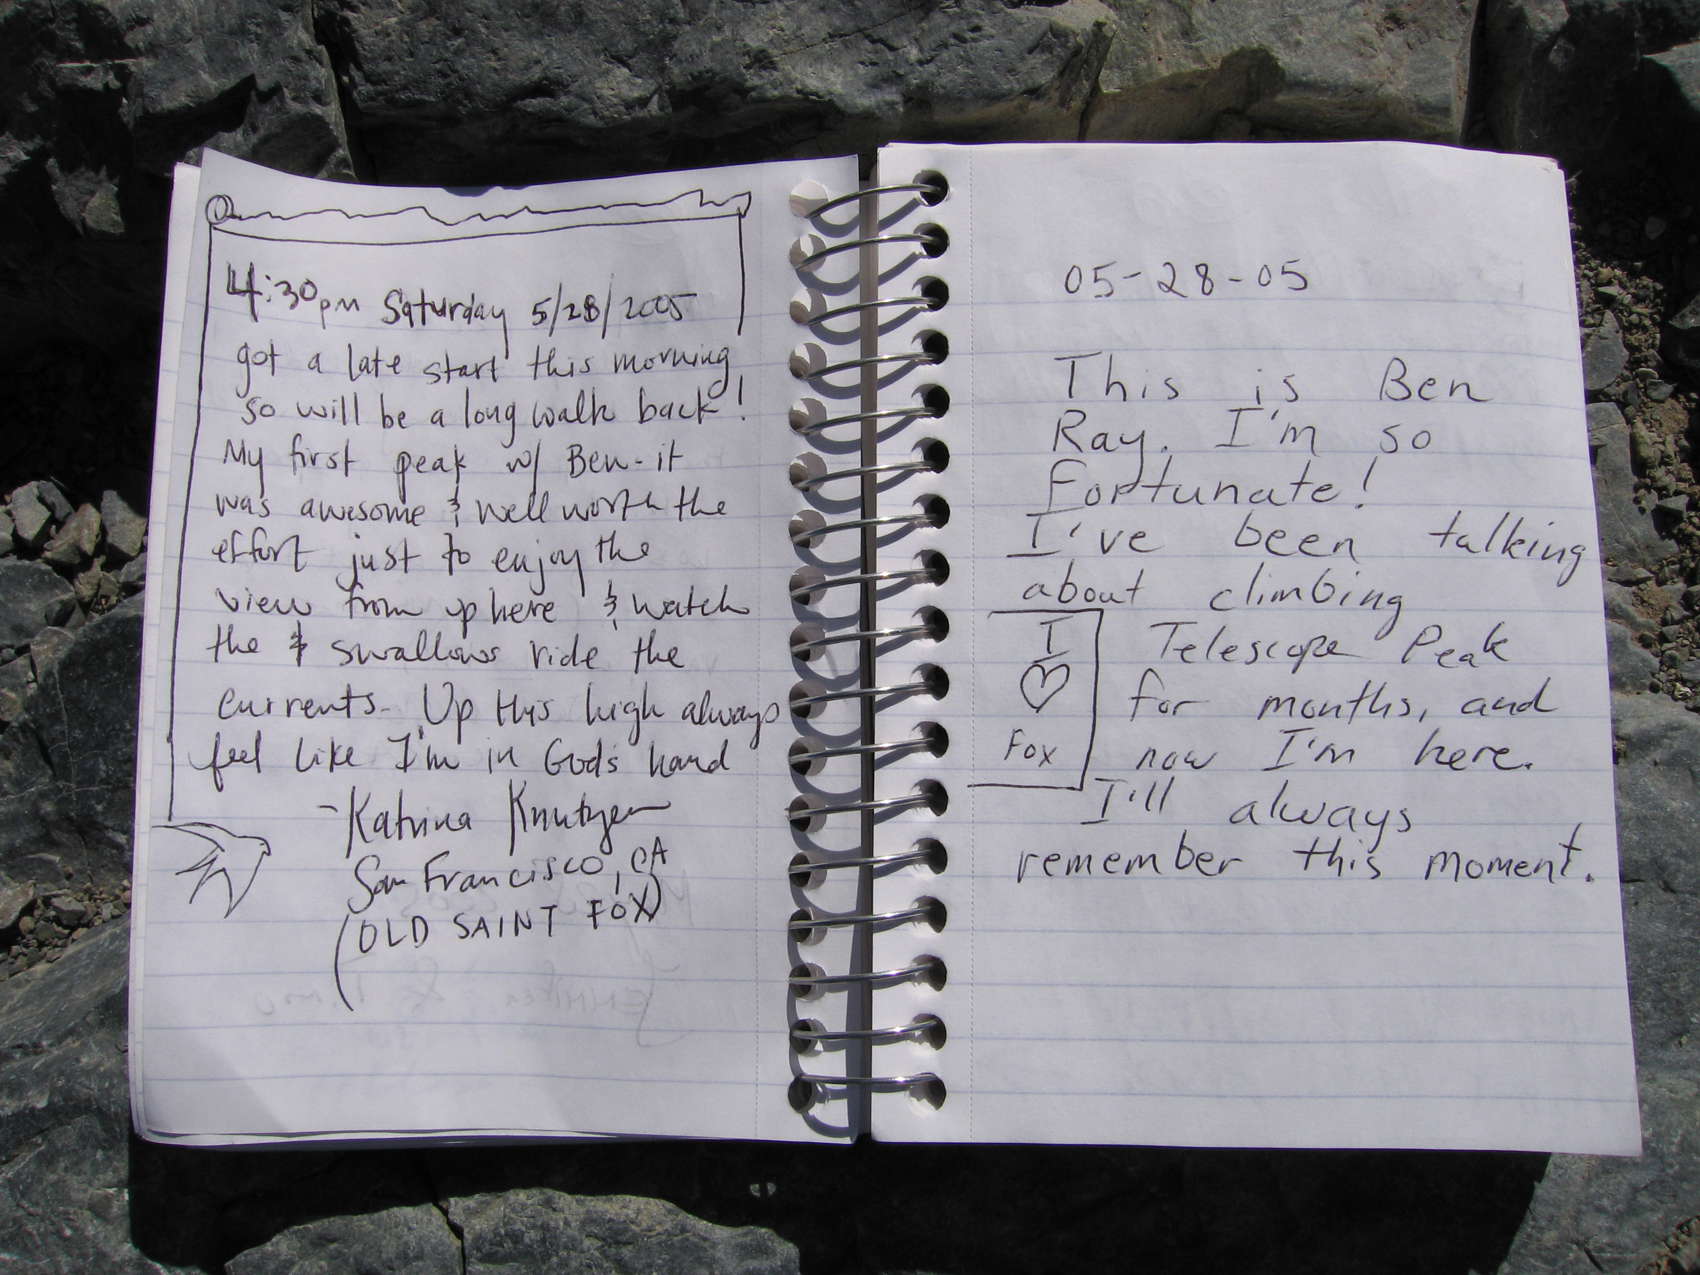 4:30pm Saturday 5/28/2005
got a late start this morning
so will be a long walk back!
My first peak w/ Ben - it
was awesome & well worth the
effort just to enjoy the
view from up here & watch
the & swallows ride the
currents. Up this high always
feel like I'm in God's hand
- Katrina Knutzen
San Francisco, CA
(OLD SAINT FOX)
05-28-05
This is Ben
Ray. I'm so
fortunate!
I've been talking
about climbing
Telescope Peak
for months, and
now I'm here.
I'll always
remember this moment.
I
♡
Fox